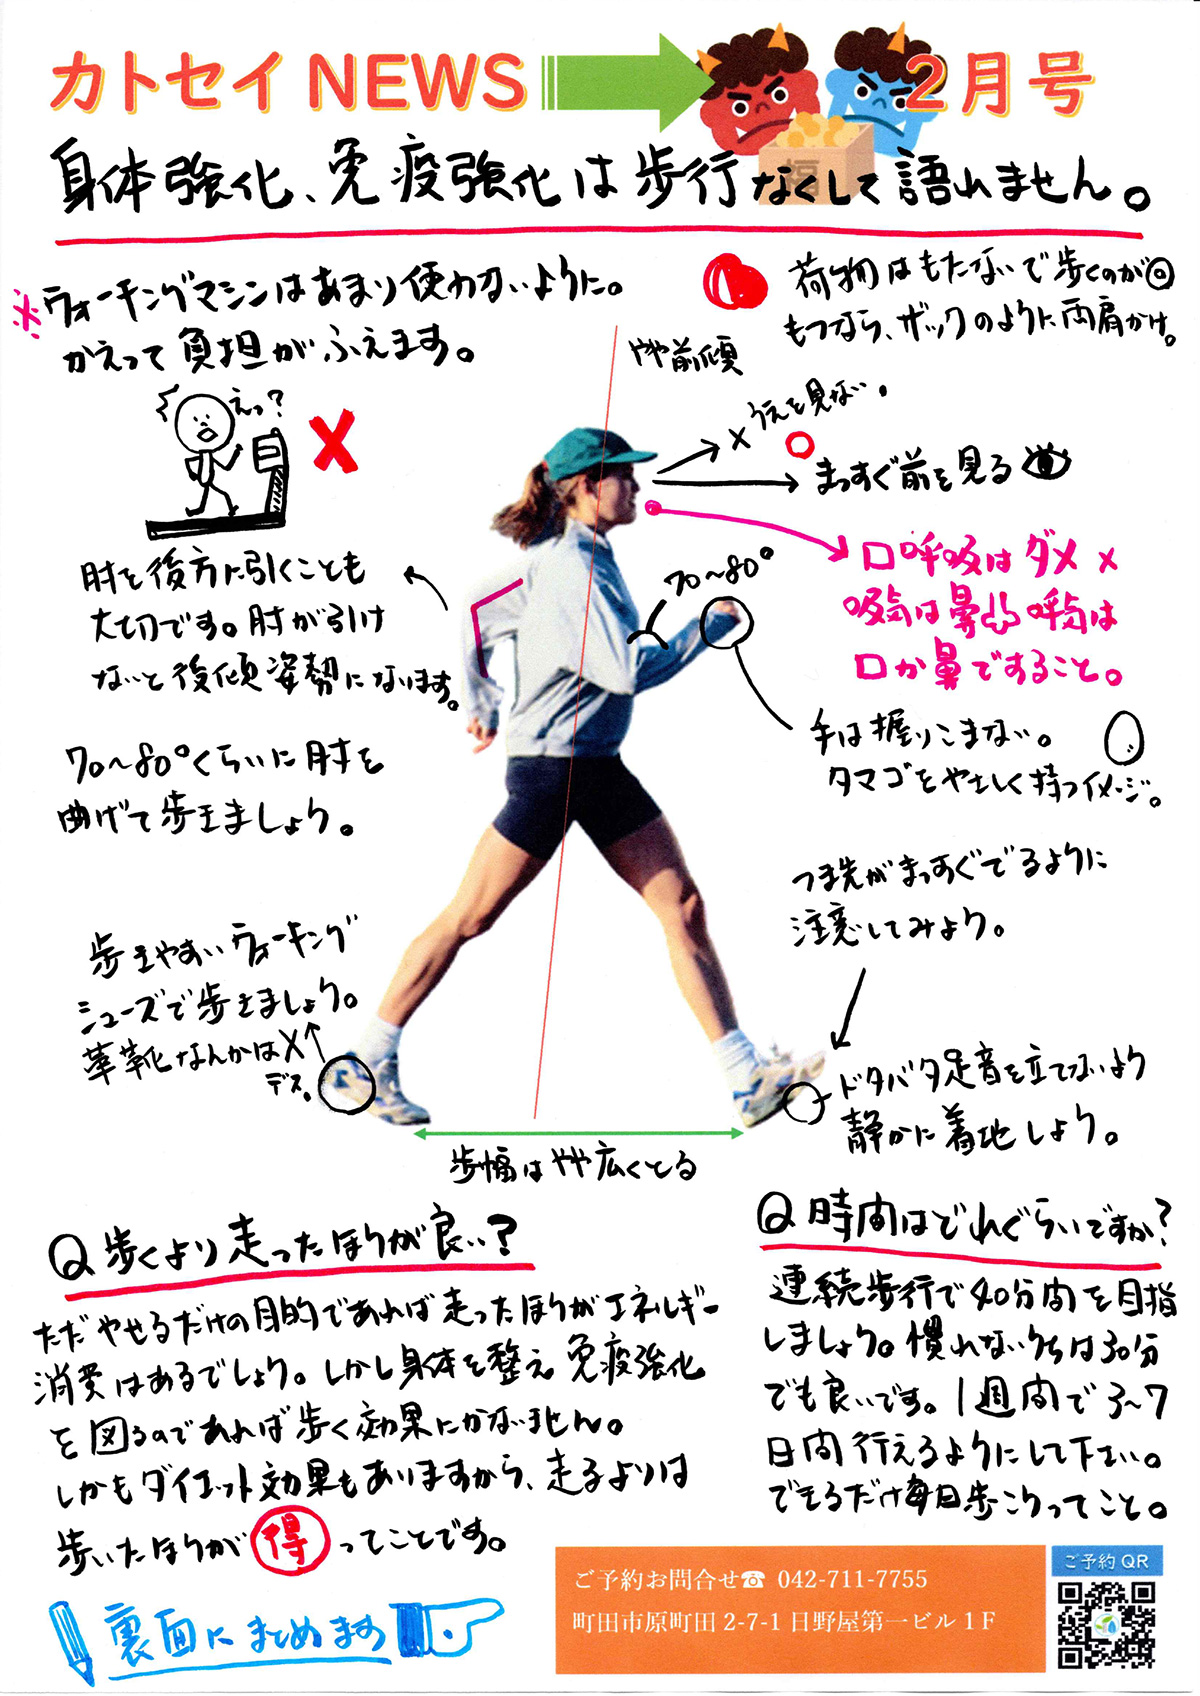 カトセイNEWS
2月号
福
身体強化、免疫強化は歩行なくして語れません。
※ウォーキングマシンはあまり使わないように。
かえって負担がふえます。
えっ?
×
荷物はもたないで歩くのが◎
もつなら、ザックのように両肩がけ。
やや前傾
× うえを見ない。
まっすぐ前を見る
口呼吸はダメ×
吸気は鼻から 呼気は
口か鼻ですること。
70〜80°
肘を後方に引くことも
大切です。肘が引け
ないと後傾姿勢になります。
70〜80°くらいに肘を
曲げて歩きましょう。
手は握りこまない。
タマゴをやさしく持つイメージ。
つま先がまっすぐでるように
注意してみよう。
歩きやすいウォーキング
シューズで歩きましょう。
革靴なんかは×
デス。
ドタバタ足音を立てないよう
静かに着地しよう。
歩幅はやや広くとる
Q 歩くより走ったほうが良い?
ただやせるだけの目的であれば走ったほうがエネルギー
消費はあるでしょう。しかし身体を整え免疫強化
を図るのであれば歩く効果にかないません。
しかもダイエット効果もありますから、走るよりは
歩いたほうが得ってことです。
Q 時間はどれぐらいですか?
連続歩行で40分間を目指
しましょう。慣れないうちは30分
でも良いです。1週間で3〜7
日間行えるようにして下さい。
できるだけ毎日歩こうってこと。
裏面にまとめます
ご予約お問合せ☎ 042-711-7755
町田市原町田2-7-1日野屋第一ビル1F
ご予約QR